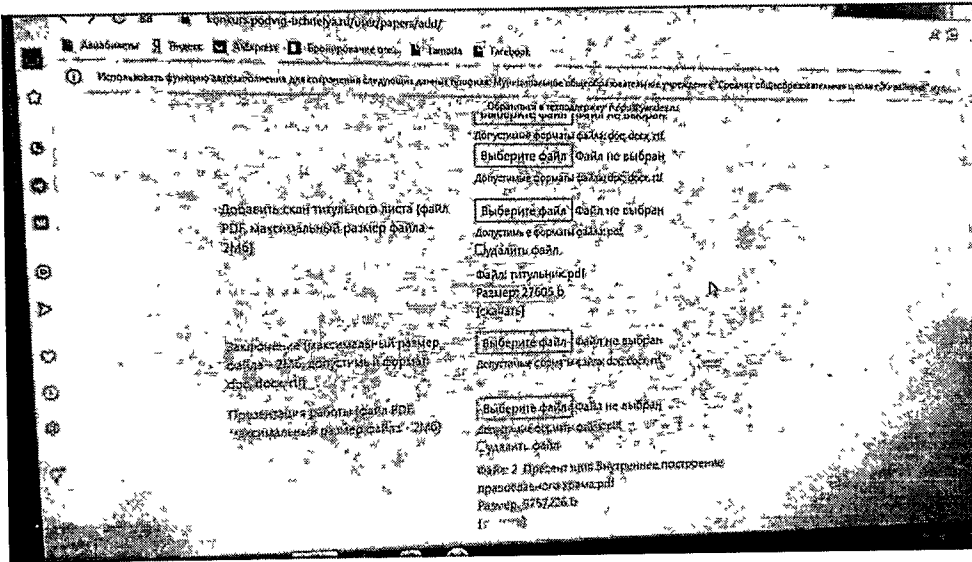 konkurs.podvig-uchitelya.ru/user/papers/add/
Авиабилеты Яндекс AliExpress Бронирование оте... Lamoda Facebook
Использовать функцию автозаполнения для сохранения следующих данных
Обратиться в техподдержку
Выберите файл Файл не выбран
Допустимые форматы файла: doc, docx, rtf
Выберите файл Файл не выбран
Допустимые форматы файла: doc, docx, rtf
Добавить скан титульного листа (файл
PDF, максимальный размер файла -
2Мб)
Выберите файл Файл не выбран
Допустимые форматы файла: pdf
Удалить файл
Файл: титульник.pdf
Размер: 27605 b
[скачать]
(максимальный размер
файла - 2Мб, допустимый формат
doc, docx, rtf)
Выберите файл Файл не выбран
Допустимые форматы файла: doc, docx, rtf
Презентация работы (файл PDF,
максимальный размер файла - 2Мб)
Выберите файл Файл не выбран
Допустимые форматы файла: pdf
Удалить файл
Файл: 2. Внутреннее построение
православного храма.pdf
Размер: